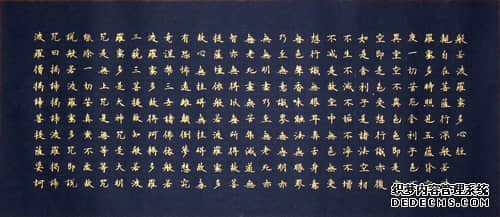 般若波羅蜜多心經
觀自在菩薩行深般若波
羅蜜多時照見五蘊皆空
度一切苦厄舍利子色不
異空空不異色色即是空
空即是色受想行識亦復
如是舍利子是諸法空相
不生不滅不垢不淨不增
不減是故空中無色無受
想行識無眼耳鼻舌身意
無色聲香味觸法無眼界
乃至無意識界無無明亦
無無明盡乃至無老死亦
無老死盡無苦集滅道無
智亦無得以無所得故菩
提薩埵依般若波羅蜜多
故心無罣礙無罣礙故無
有恐怖遠離顛倒夢想究
竟涅槃三世諸佛依般若
波羅蜜多故得阿耨多羅
三藐三菩提故知般若波
羅蜜多是大神咒是大明
咒是無上咒是無等等咒
能除一切苦真實不虛故
說般若波羅蜜多咒即說
咒曰揭諦揭諦波羅揭諦
波羅僧揭諦菩提薩婆訶
织梦内容管理系统
DEDECMS.COM